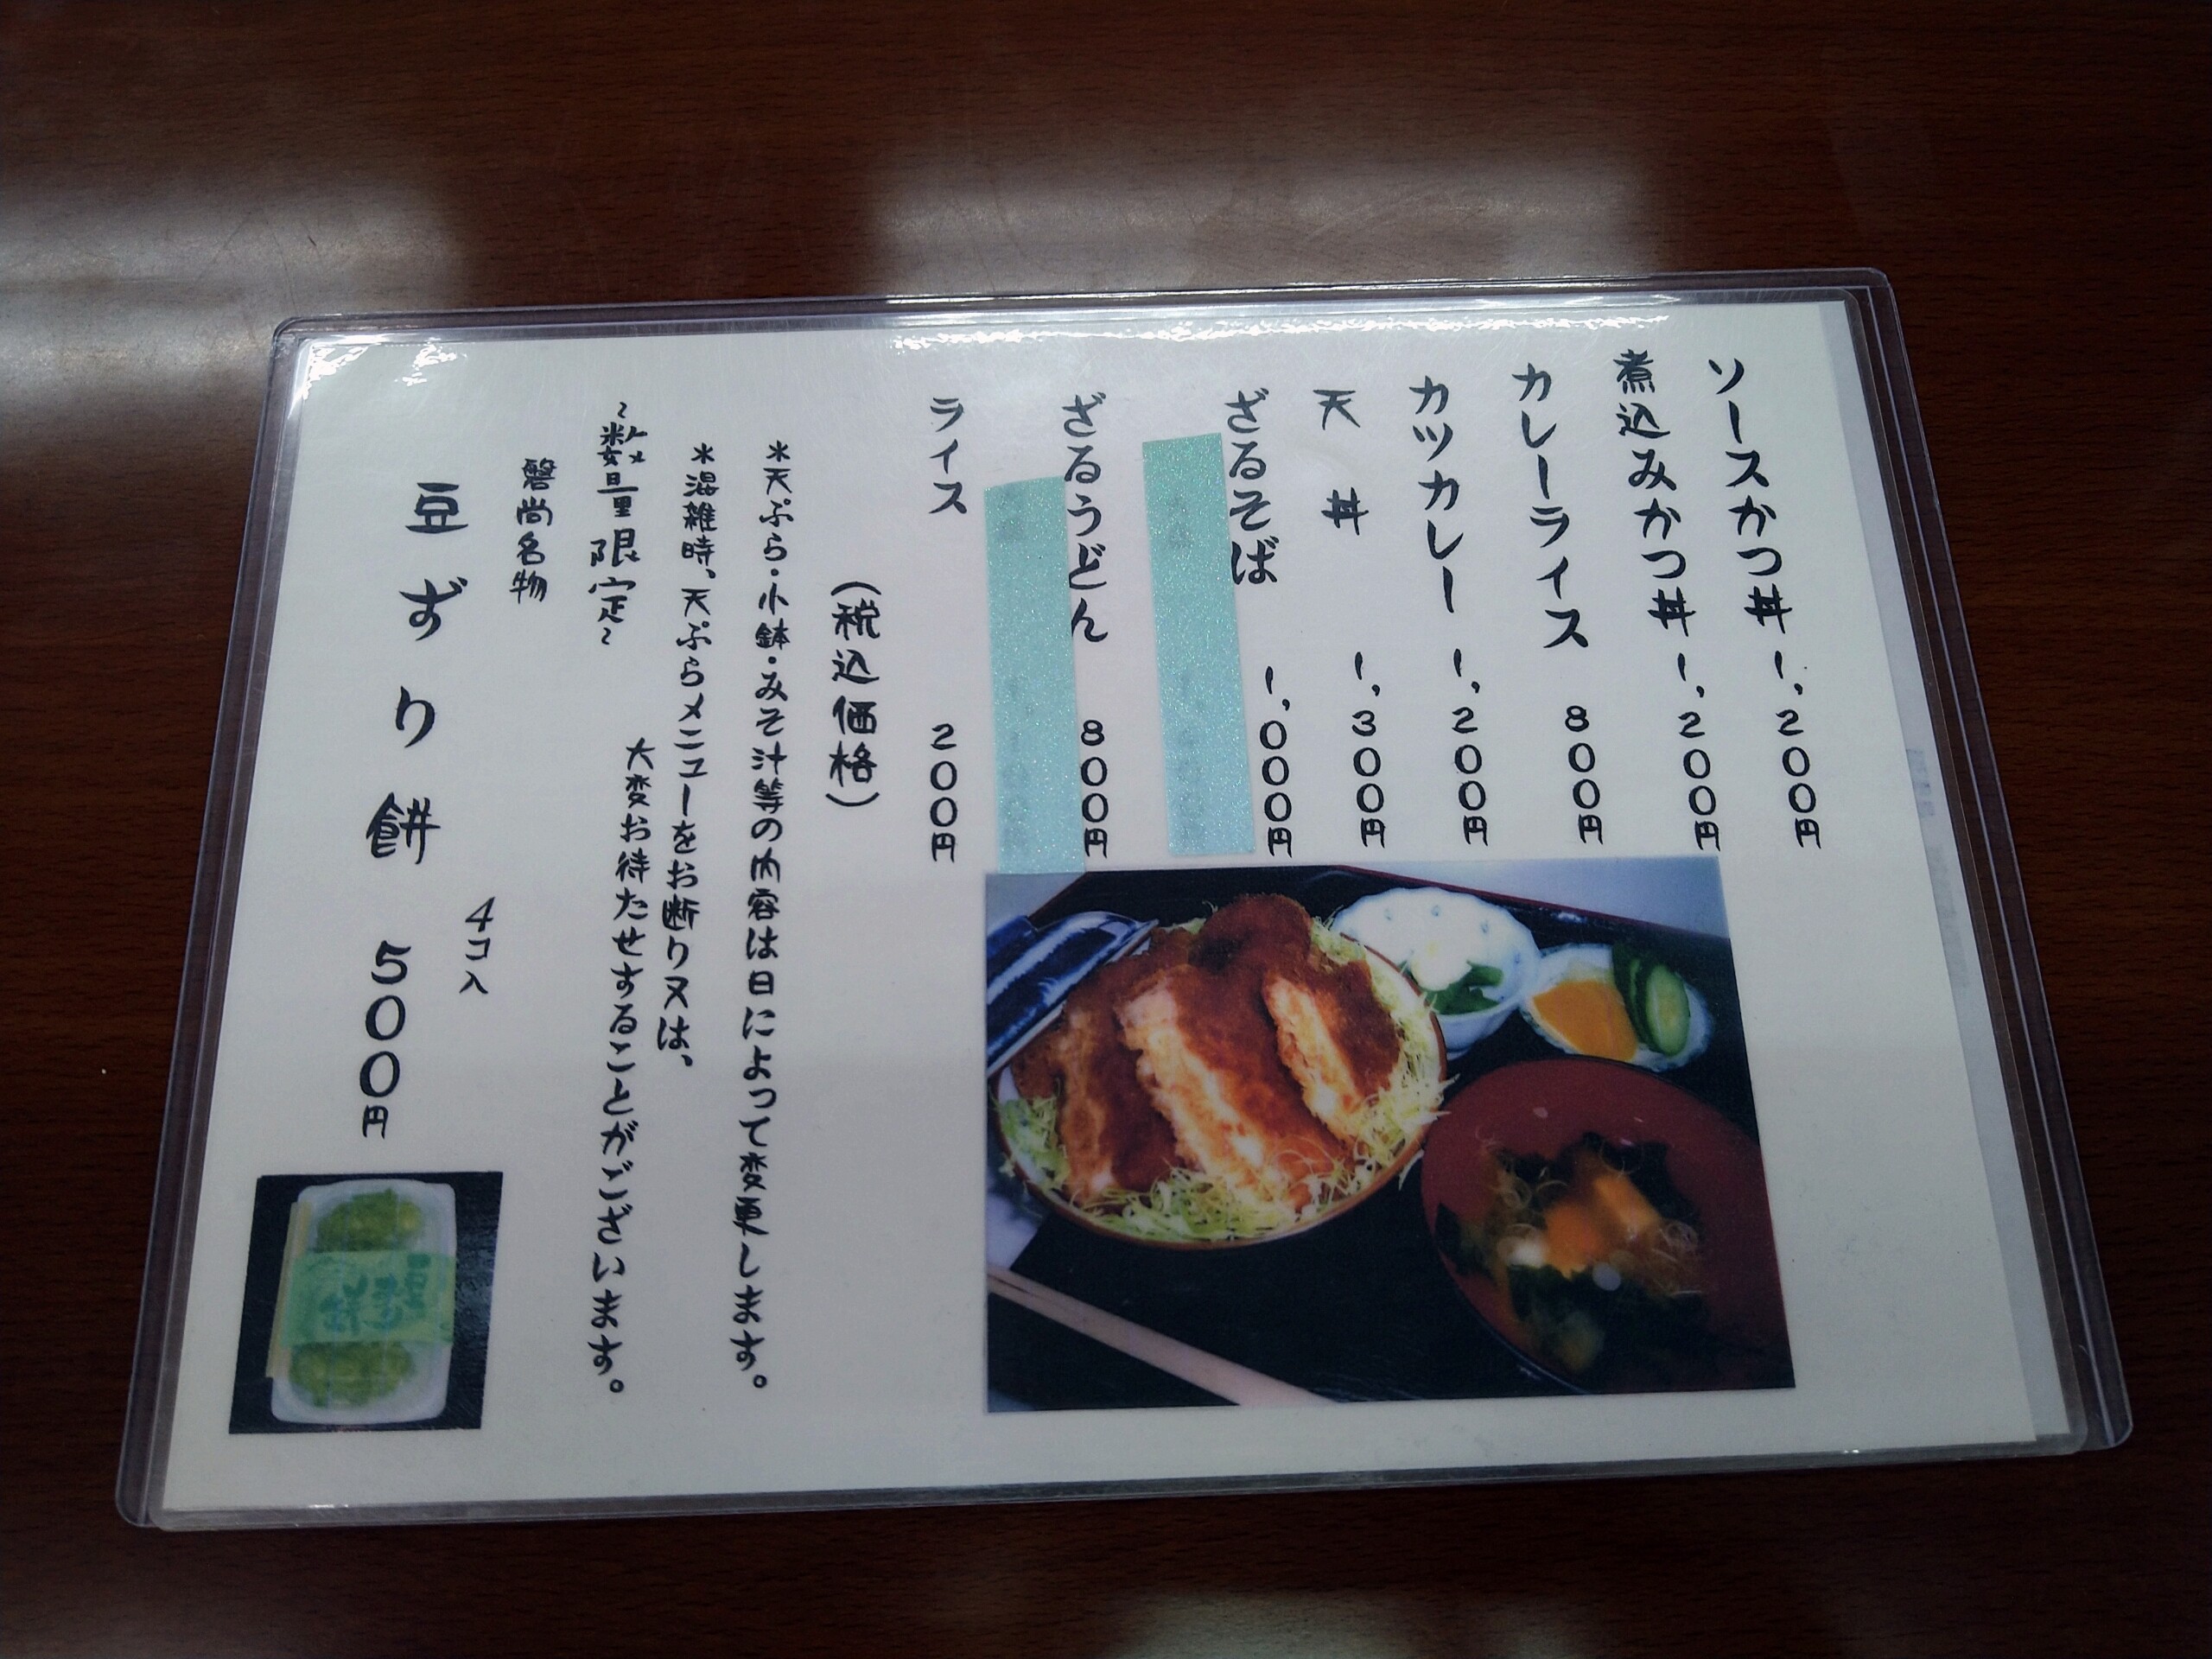 ソースかつ丼 1,200円
煮込みかつ丼 1,200円
カレーライス 800円
カツカレー 1,200円
天丼 1,300円
ざるそば 1,000円
ざるうどん 800円
ライス 200円
(税込価格)
*天ぷら・小鉢・みそ汁等の内容は日によって変更します。
*混雑時、天ぷらメニューをお断り又は、
大変お待たせすることがございます。
~数量限定~
磐尚名物
4コ入
豆ずり餅 500円